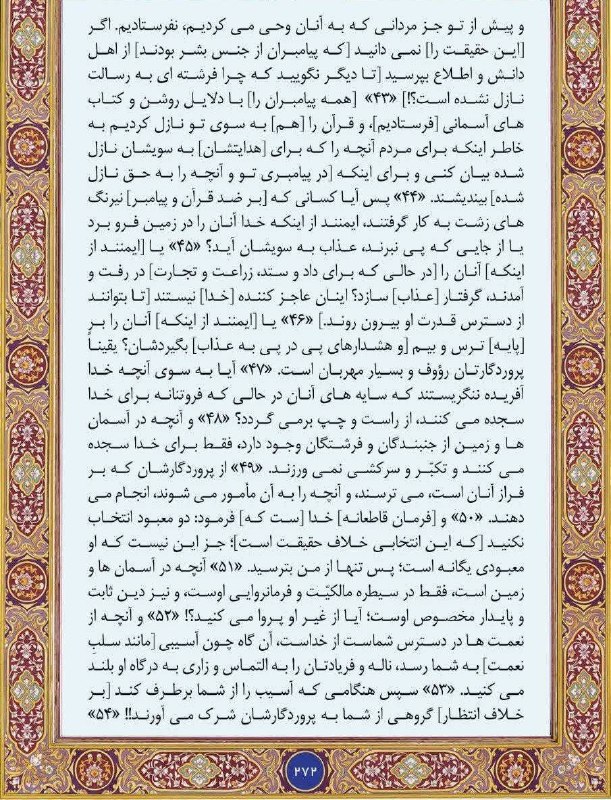 و پیش از تو جز مردانی که به آنان وحی می کردیم، نفرستادیم. اگر
[این حقیقت را] نمی دانید [که پیامبران از جنس بشر بودند] از اهل
دانش و اطلاع بپرسید [تا دیگر نگویید که چرا فرشته ای به رسالت
نازل نشده است؟!] «۴۳» [همه پیامبران را] با دلایل روشن و کتاب
های آسمانی [فرستادیم]، و قرآن را [هم] به سوی تو نازل کردیم به
خاطر اینکه برای مردم آنچه را که برای [هدایتشان] به سویشان نازل
شده بیان کنی و برای اینکه [در پیامبری تو و آنچه را به حق نازل
شده] بیندیشند. «۴۴» پس آیا کسانی که [بر ضد قرآن و پیامبر] نیرنگ
های زشت به کار گرفتند، ایمنند از اینکه خدا آنان را در زمین فرو برد
یا از جایی که پی نبرند، عذاب به سویشان آید؟ «۴۵» یا [ایمنند از
اینکه] آنان را [در حالی که برای داد و ستد، زراعت و تجارت] در رفت و
آمدند، گرفتار [عذاب] سازد؟ اینان عاجز کننده [خدا] نیستند [تا بتوانند
از دسترس قدرت او بیرون روند.] «۴۶» یا [ایمنند از اینکه] آنان را بر
[پایه] ترس و بیم [و هشدارهای پی در پی به عذاب] بگیردشان؟ یقیناً
پروردگارتان رؤوف و بسیار مهربان است. «۴۷» آیا به سوی آنچه خدا
آفریده ننگریستند که سایه های آنان در حالی که فروتنانه برای خدا
سجده می کنند، از راست و چپ برمی گردد؟ «۴۸» و آنچه در آسمان
ها و زمین از جنبندگان و فرشتگان وجود دارد، فقط برای خدا سجده
می کنند و تکبّر و سرکشی نمی ورزند. «۴۹» از پروردگارشان که بر
فراز آنان است، می ترسند، و آنچه را به آن مأمور می شوند، انجام می
دهند. «۵۰» و [فرمان قاطعانه] خدا [ست که] فرمود: دو معبود انتخاب
نکنید [که این انتخابی خلاف حقیقت است]؛ جز این نیست که او
معبودی یگانه است؛ پس تنها از من بترسید. «۵۱» آنچه در آسمان ها و
زمین است، فقط در سیطره مالکیّت و فرمانروایی اوست، و نیز دین ثابت
و پایدار مخصوص اوست؛ آیا از غیر او پروا می کنید؟! «۵۲» و آنچه از
نعمت ها در دسترس شماست از خداست، آن گاه چون آسیبی [مانند سلبِ
نعمت] به شما رسد، ناله و فریادتان را به التماس و زاری به درگاه او بلند
می کنید. «۵۳» سپس هنگامی که آسیب را از شما برطرف کند [بر
خلاف انتظار] گروهی از شما به پروردگارشان شرک می آورند!! «۵۴»
۲۷۲